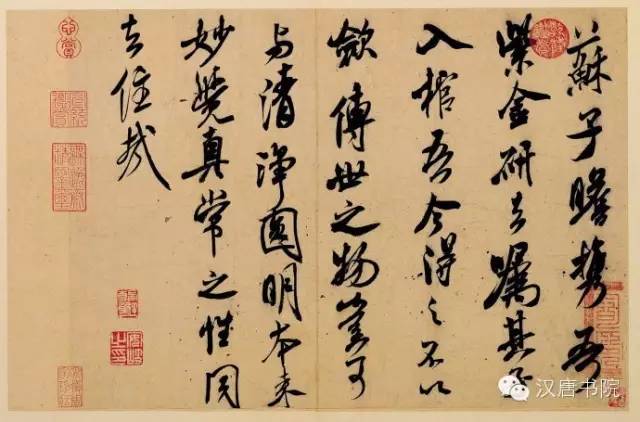 蘇子瞻携吾
紫金研去嘱其子
入棺吾今得之不以
歛傳世之物豈可
与清淨圓明本来
妙覺真常之性同
去住哉
汉唐书院